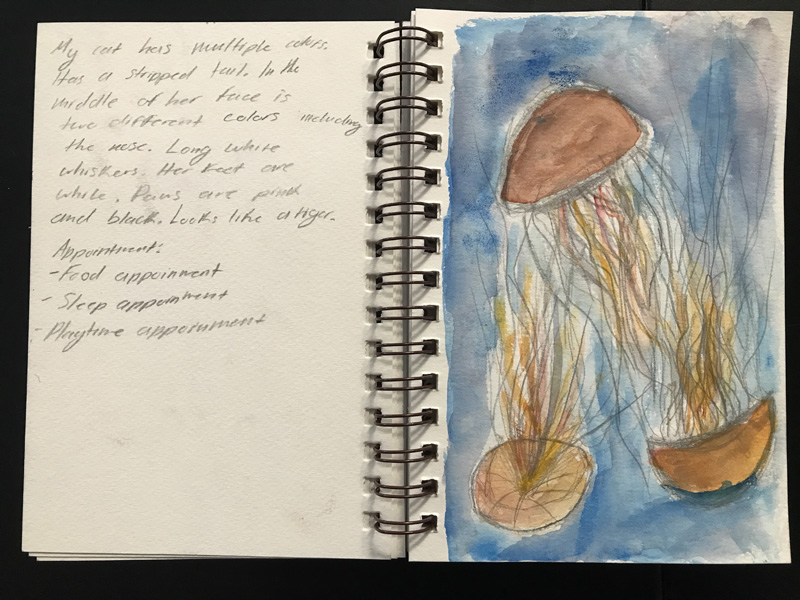 My cat has multiple colors.
Has a stripped tail. In the
middle of her face is
two different colors including
the nose. Long white
whiskers. Her feet are
white. Paws are pink
and black. Looks like a tiger.
Appointment:
- Food appoinment
- Sleep appoinment
- Playtime appoinment